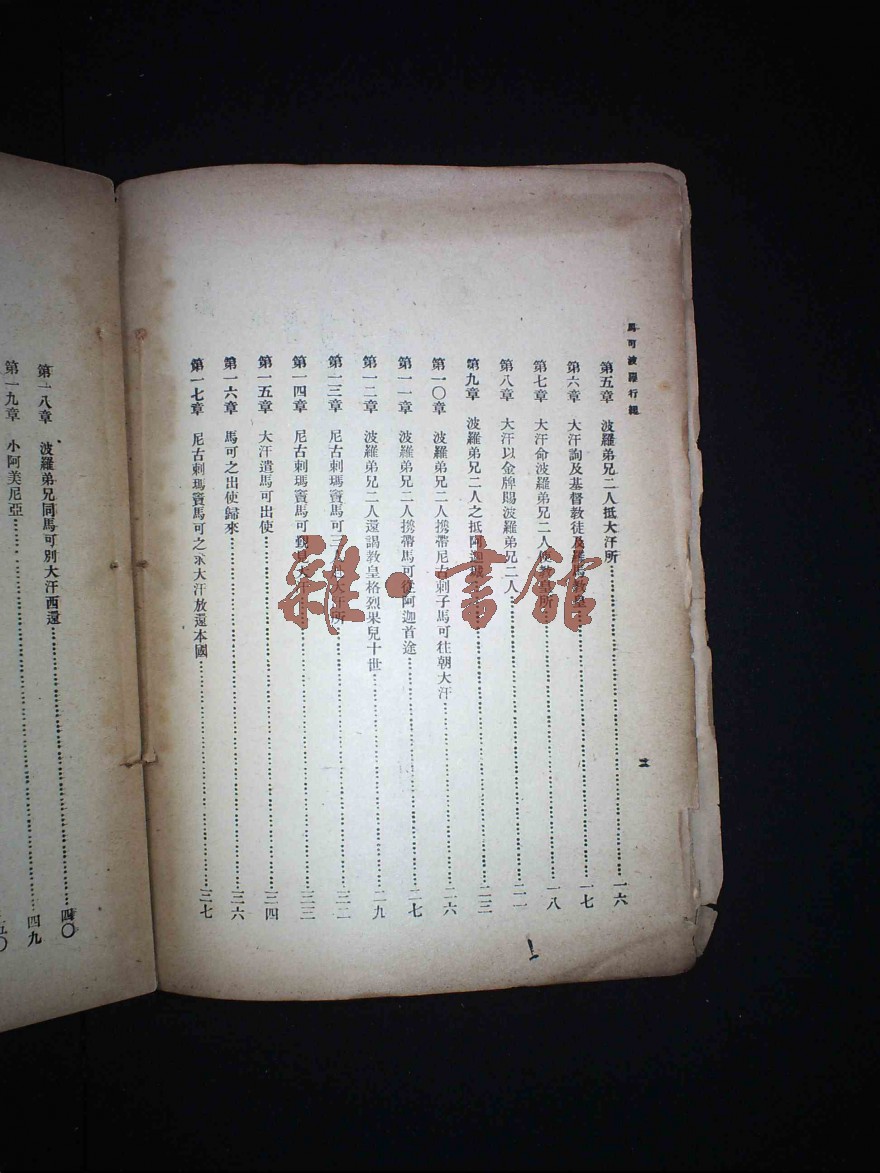 馬可波羅行紀
第五章 波羅弟兄二人抵大汗所 一六
第六章 大汗詢及基督教徒及羅馬教皇 一七
第七章 大汗命波羅弟兄二人使教皇所 一八
第八章 大汗以金牌賜波羅弟兄二人 二一
第九章 波羅弟兄二人之抵阿迦城 二三
第一〇章 波羅弟兄二人携帶尼古剌子馬可往朝大汗 二六
第一一章 波羅弟兄二人携帶馬可從阿迦首途 二七
第一二章 波羅弟兄二人還謁教皇格烈果兒十世 二九
第一三章 尼古剌瑪竇馬可三人赴大汗所 三二
第一四章 尼古剌瑪竇馬可覲見大汗 三三
第一五章 大汗遣馬可出使 三四
第一六章 馬可之出使歸來 三六
第一七章 尼古剌瑪竇馬可之求大汗放還本國 三七
二
第一八章 波羅弟兄同馬可別大汗西還 四〇
第一九章 小阿美尼亞 四九
五〇
雜·書館